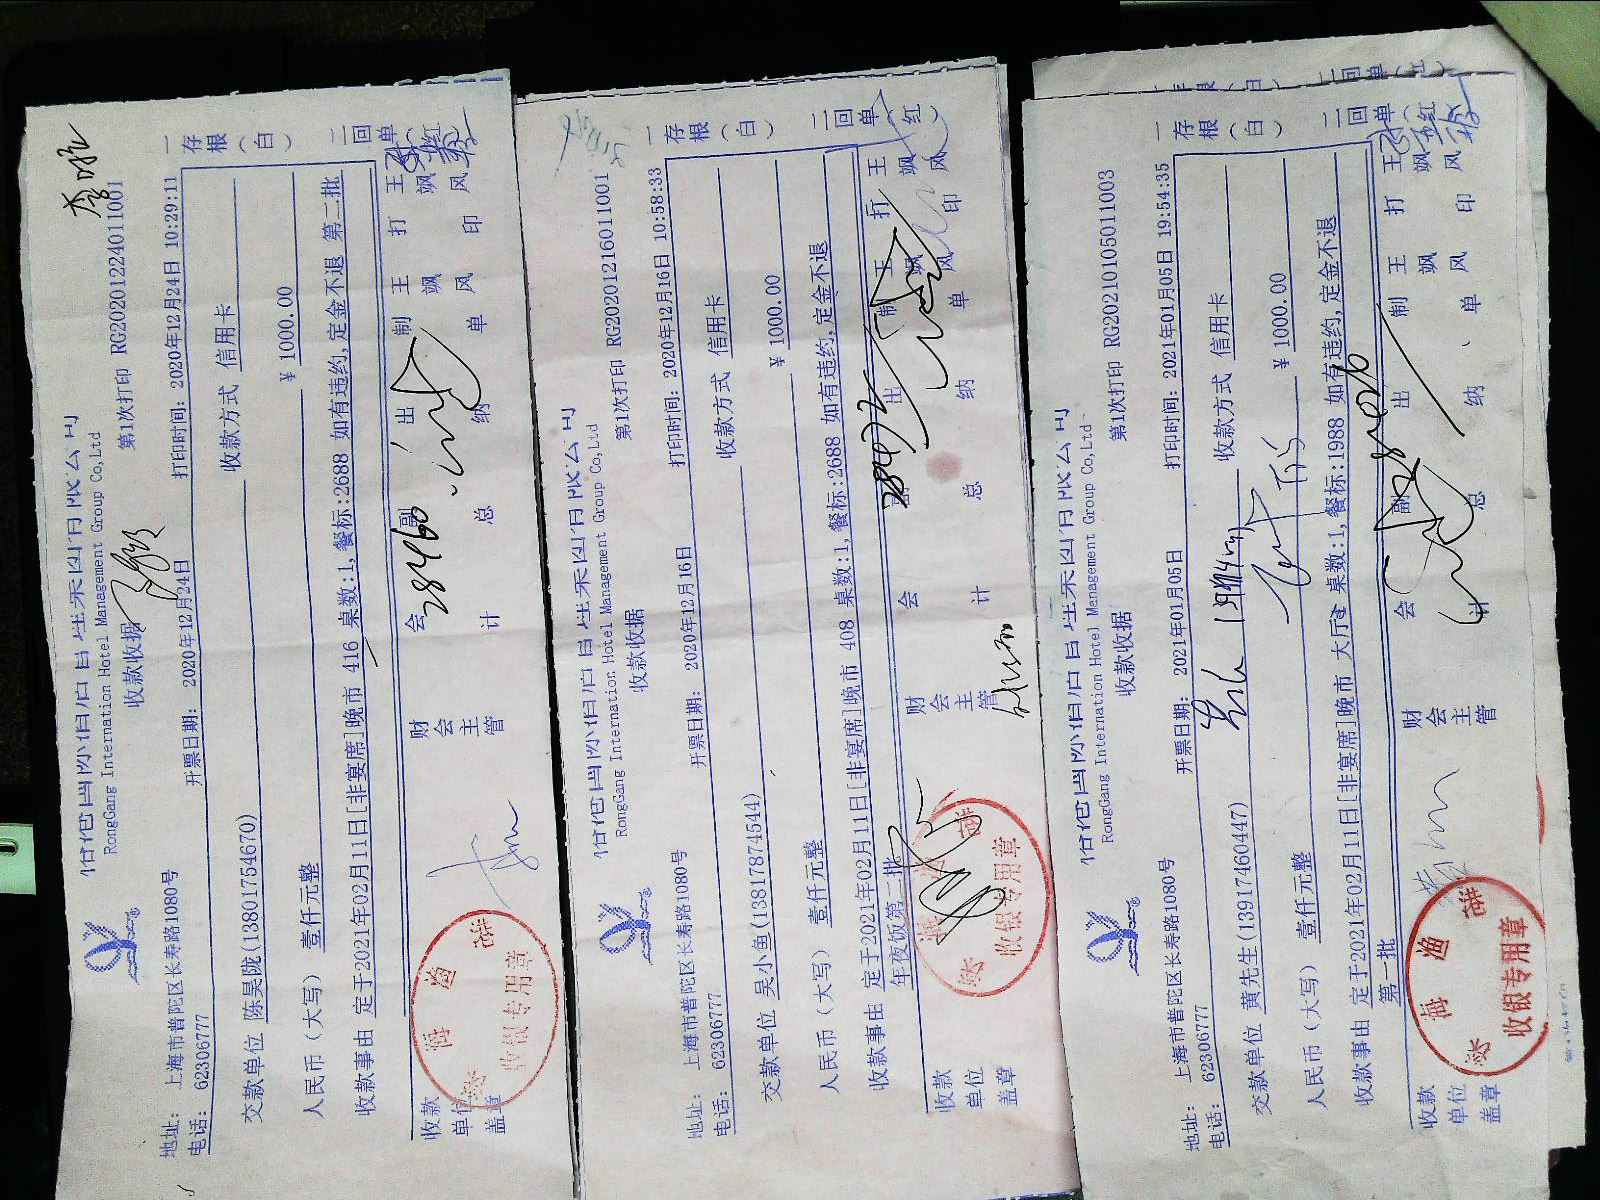 RongGang International Hotel Management Group Co,Ltd
收款收据
第1次打印 RG20201224011001
地址: 上海市普陀区长寿路1080号
电话: 62306777
开票日期: 2020年12月24日
打印时间: 2020年12月24日 10:29:11
交款单位 陈昊陇(13801754670)
收款方式 信用卡
人民币(大写) 壹仟元整
¥ 1000.00
收款事由 定于2021年02月11日[非宴席]晚市 416 桌数:1,餐标:2688 如有违约,定金不退 第二批
收款单位盖章
财会主管
会计
副总
出纳
制单
王飒风
打印
王飒风
一存根(白)
二回单(红)
284460
收银专用章
RongGang International Hotel Management Group Co,Ltd
收款收据
第1次打印 RG20201216011001
地址: 上海市普陀区长寿路1080号
电话: 62306777
开票日期: 2020年12月16日
打印时间: 2020年12月16日 10:58:33
交款单位 吴小鱼(13817874544)
收款方式 信用卡
人民币(大写) 壹仟元整
¥ 1000.00
收款事由 定于2021年02月11日[非宴席]晚市 408 桌数:1,餐标:2688 如有违约,定金不退
年夜饭第二批
收款单位盖章
财会主管
会计
副总
出纳
制单
王飒风
打印
王飒风
一存根(白)
二回单(红)
收银专用章
RongGang International Hotel Management Group Co,Ltd
收款收据
第1次打印 RG20210105011003
地址: 上海市普陀区长寿路1080号
电话: 62306777
开票日期: 2021年01月05日
打印时间: 2021年01月05日 19:54:35
交款单位 黄先生(13917460447)
收款方式 信用卡
人民币(大写) 壹仟元整
¥ 1000.00
收款事由 定于2021年02月11日[非宴席]晚市 大厅 桌数:1,餐标:1988 如有违约,定金不退
第一批
收款单位盖章
财会主管
会计
副总
出纳
制单
王飒风
打印
王飒风
一存根(白)
二回单(红)
收银专用章